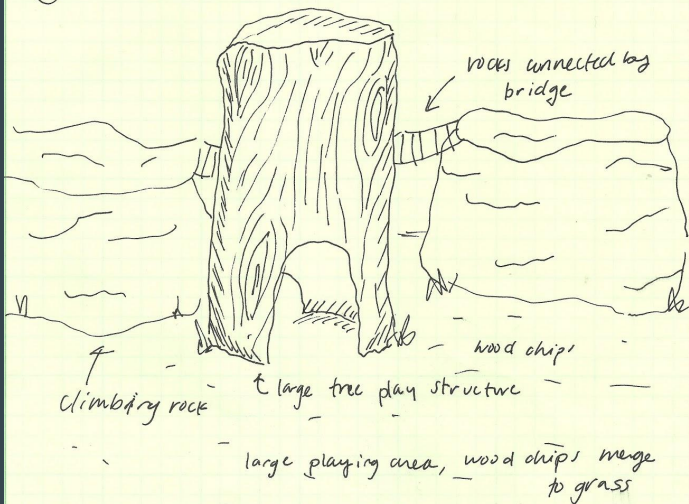 rocks connected by
bridge
wood chips
climbing rock
large tree play structure
large playing area, wood chips merge
to grass